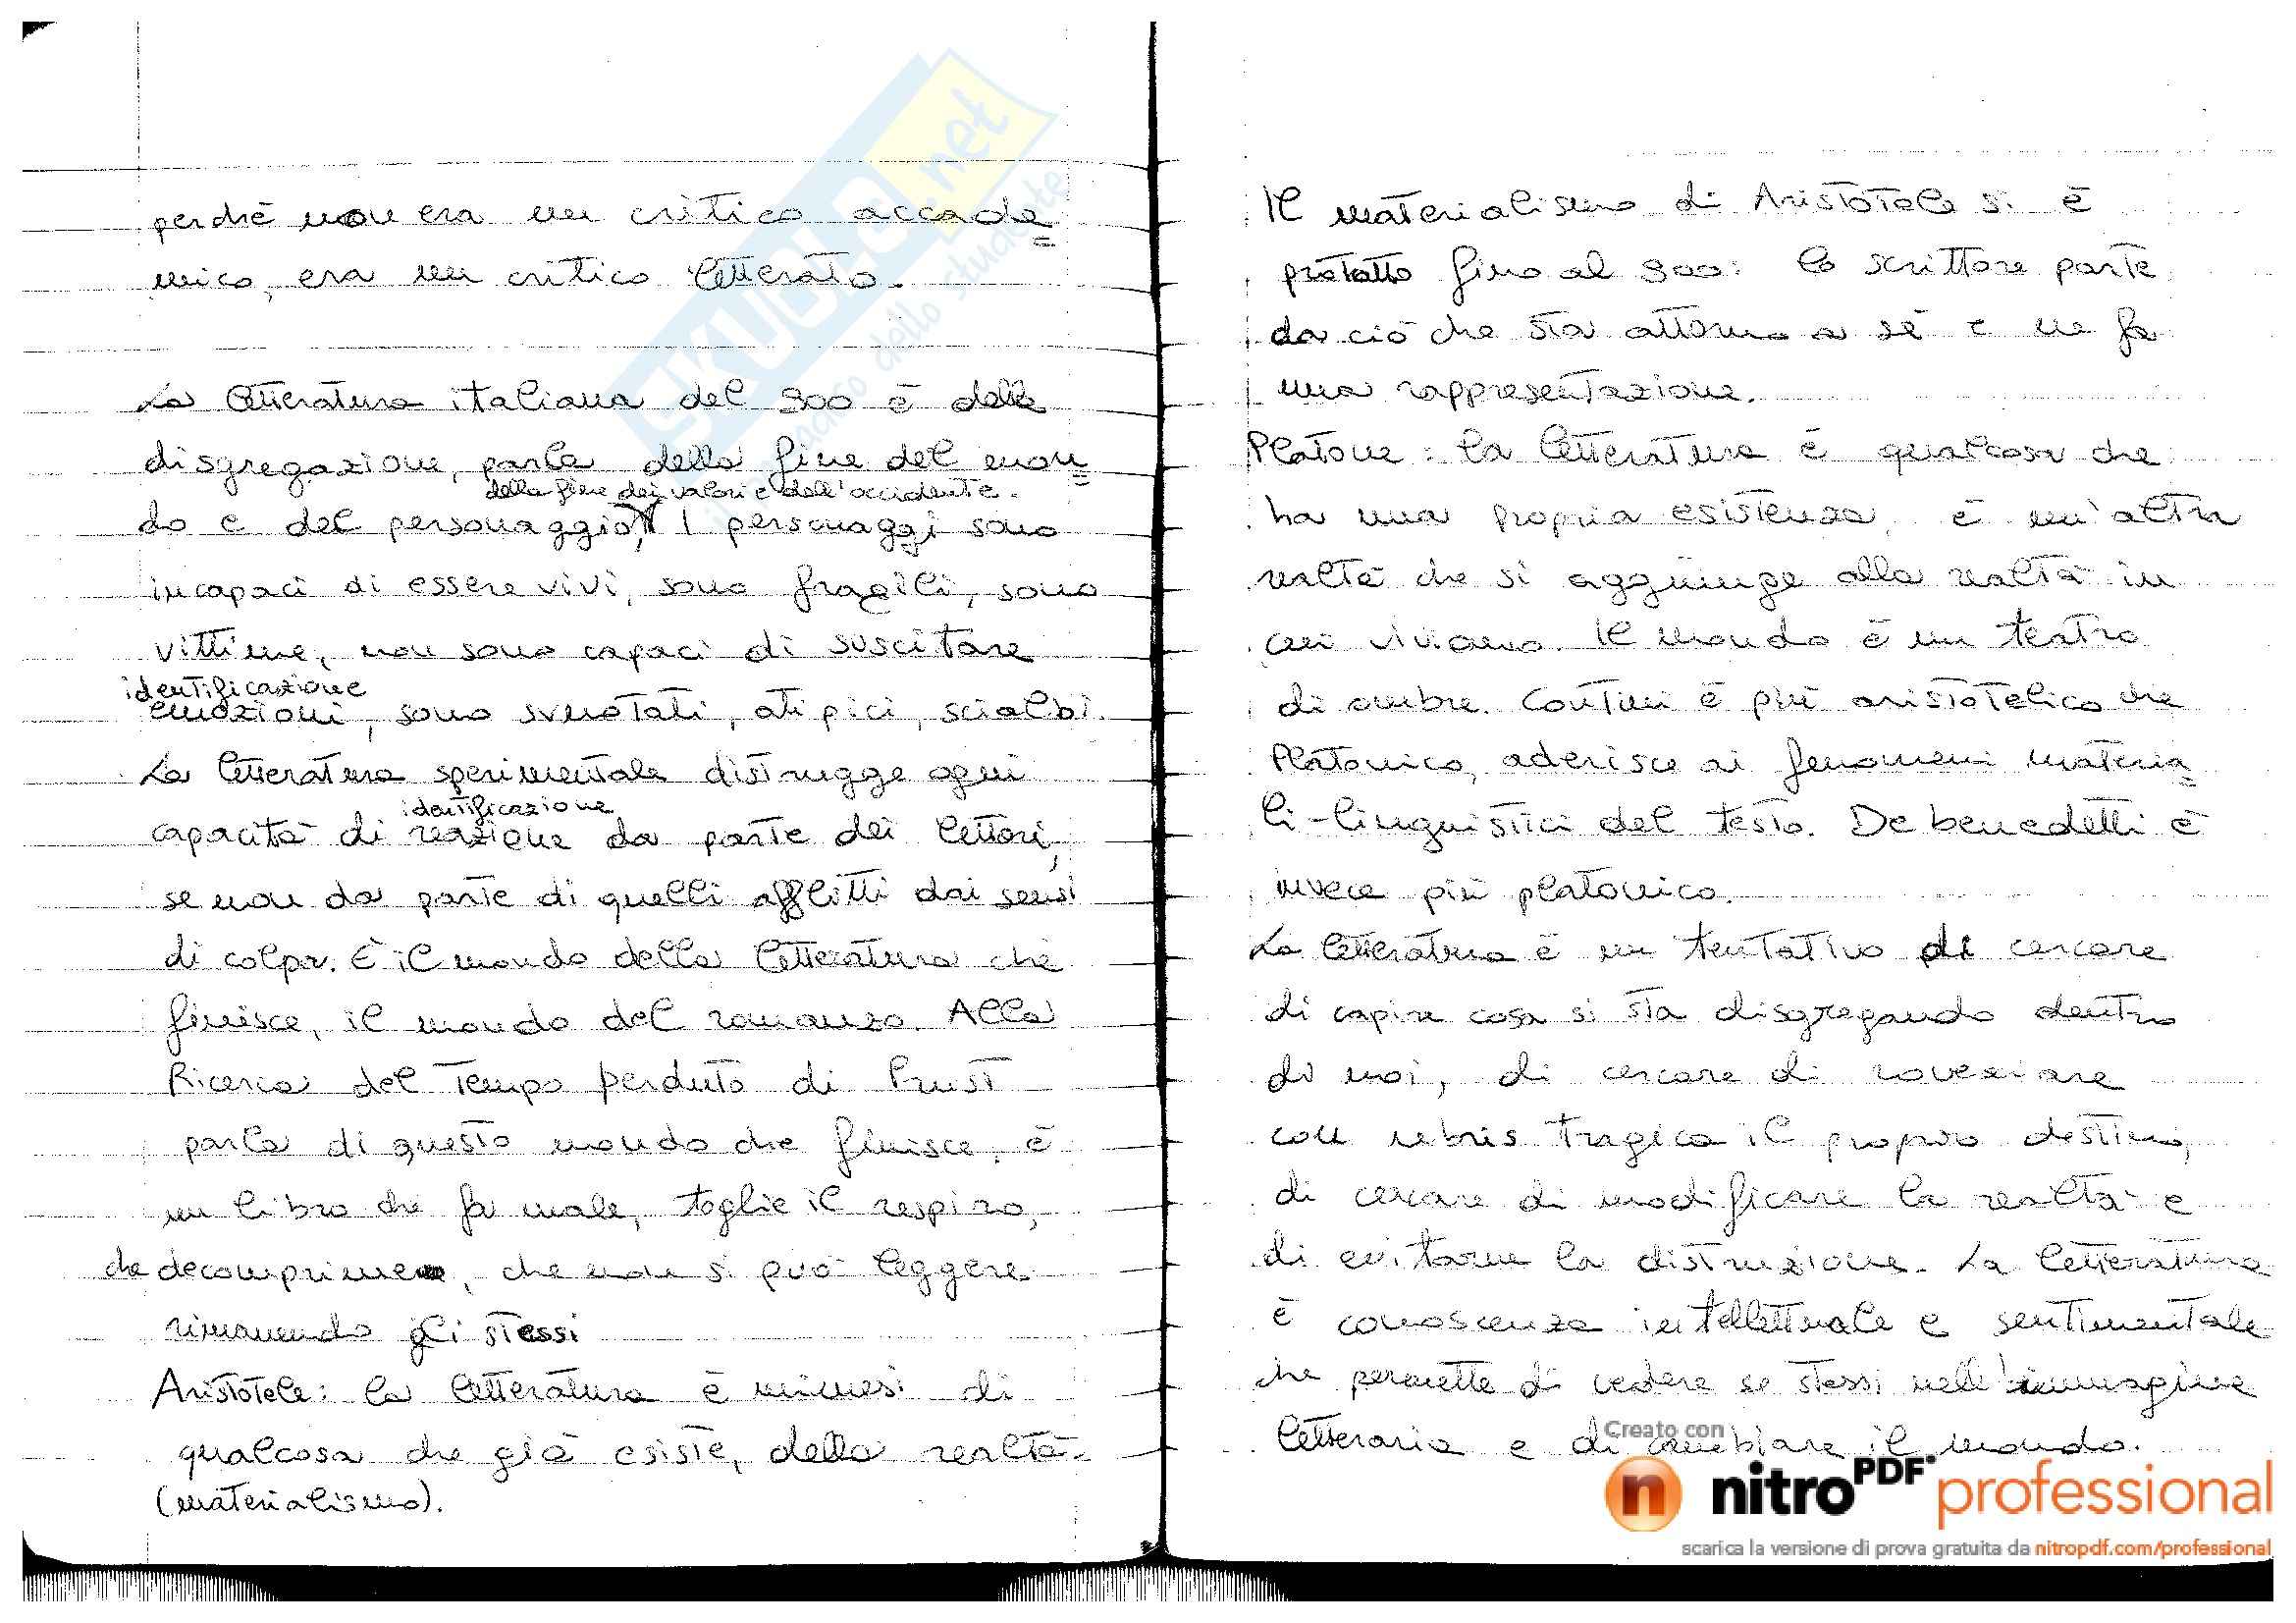 perchè non era un critico accade=
mico, era un critico letterato.
La letteratura italiana del 900 è della
disgregazione, parla della fine del mon=
della fine dei valori e dell'occidente.
do e del personaggio, I personaggi sono
incapaci di essere vivi, sono fragili, sono
vittime, non sono capaci di suscitare
identificazione
emozioni, sono svuotati, atipici, scialbi.
La letteratura sperimentale distrugge ogni
identificazione
capacità di reazione da parte dei lettori,
se non da parte di quelli afflitti dai sensi
di colpa. È il mondo della letteratura che
finisce, il mondo del romanzo. Alla
Ricerca del Tempo perduto di Prust
parla di questo mondo che finisce, è
un libro che fa male, toglie il respiro,
che decomprime, che non si può leggere
rimanendo gli stessi
Aristotele: la letteratura è mimesi di
qualcosa che già esiste, della realtà
(materialismo).
Il materialismo di Aristotele si è
protatto fino al 900: lo scrittore parte
da ciò che sta attorno a sè e ne fa
una rappresentazione.
Platone: la letteratura è qualcosa che
ha una propria esistenza, è un'altra
realtà che si aggiunge alla realtà in
cui viviamo. Il mondo è un teatro
di ombre. Contini è più aristotelico che
Platonico, aderisce ai fenomeni materia=
li-linguistici del testo. Debenedetti è
invece più platonico.
La letteratura è un tentativo di cercare
di capire cosa si sta disgregando dentro
di noi, di cercare di rovesciare
con ubris tragica il proprio destino,
di cercare di modificare la realtà e
di evitarne la distruzione. La letteratura
è conoscenza intellettuale e sentimentale
che permette di vedere se stessi nell'immagine
letteraria e di cambiare il mondo.
Creato con
nitroPDF professional
scarica la versione di prova gratuita da nitropdf.com/professional